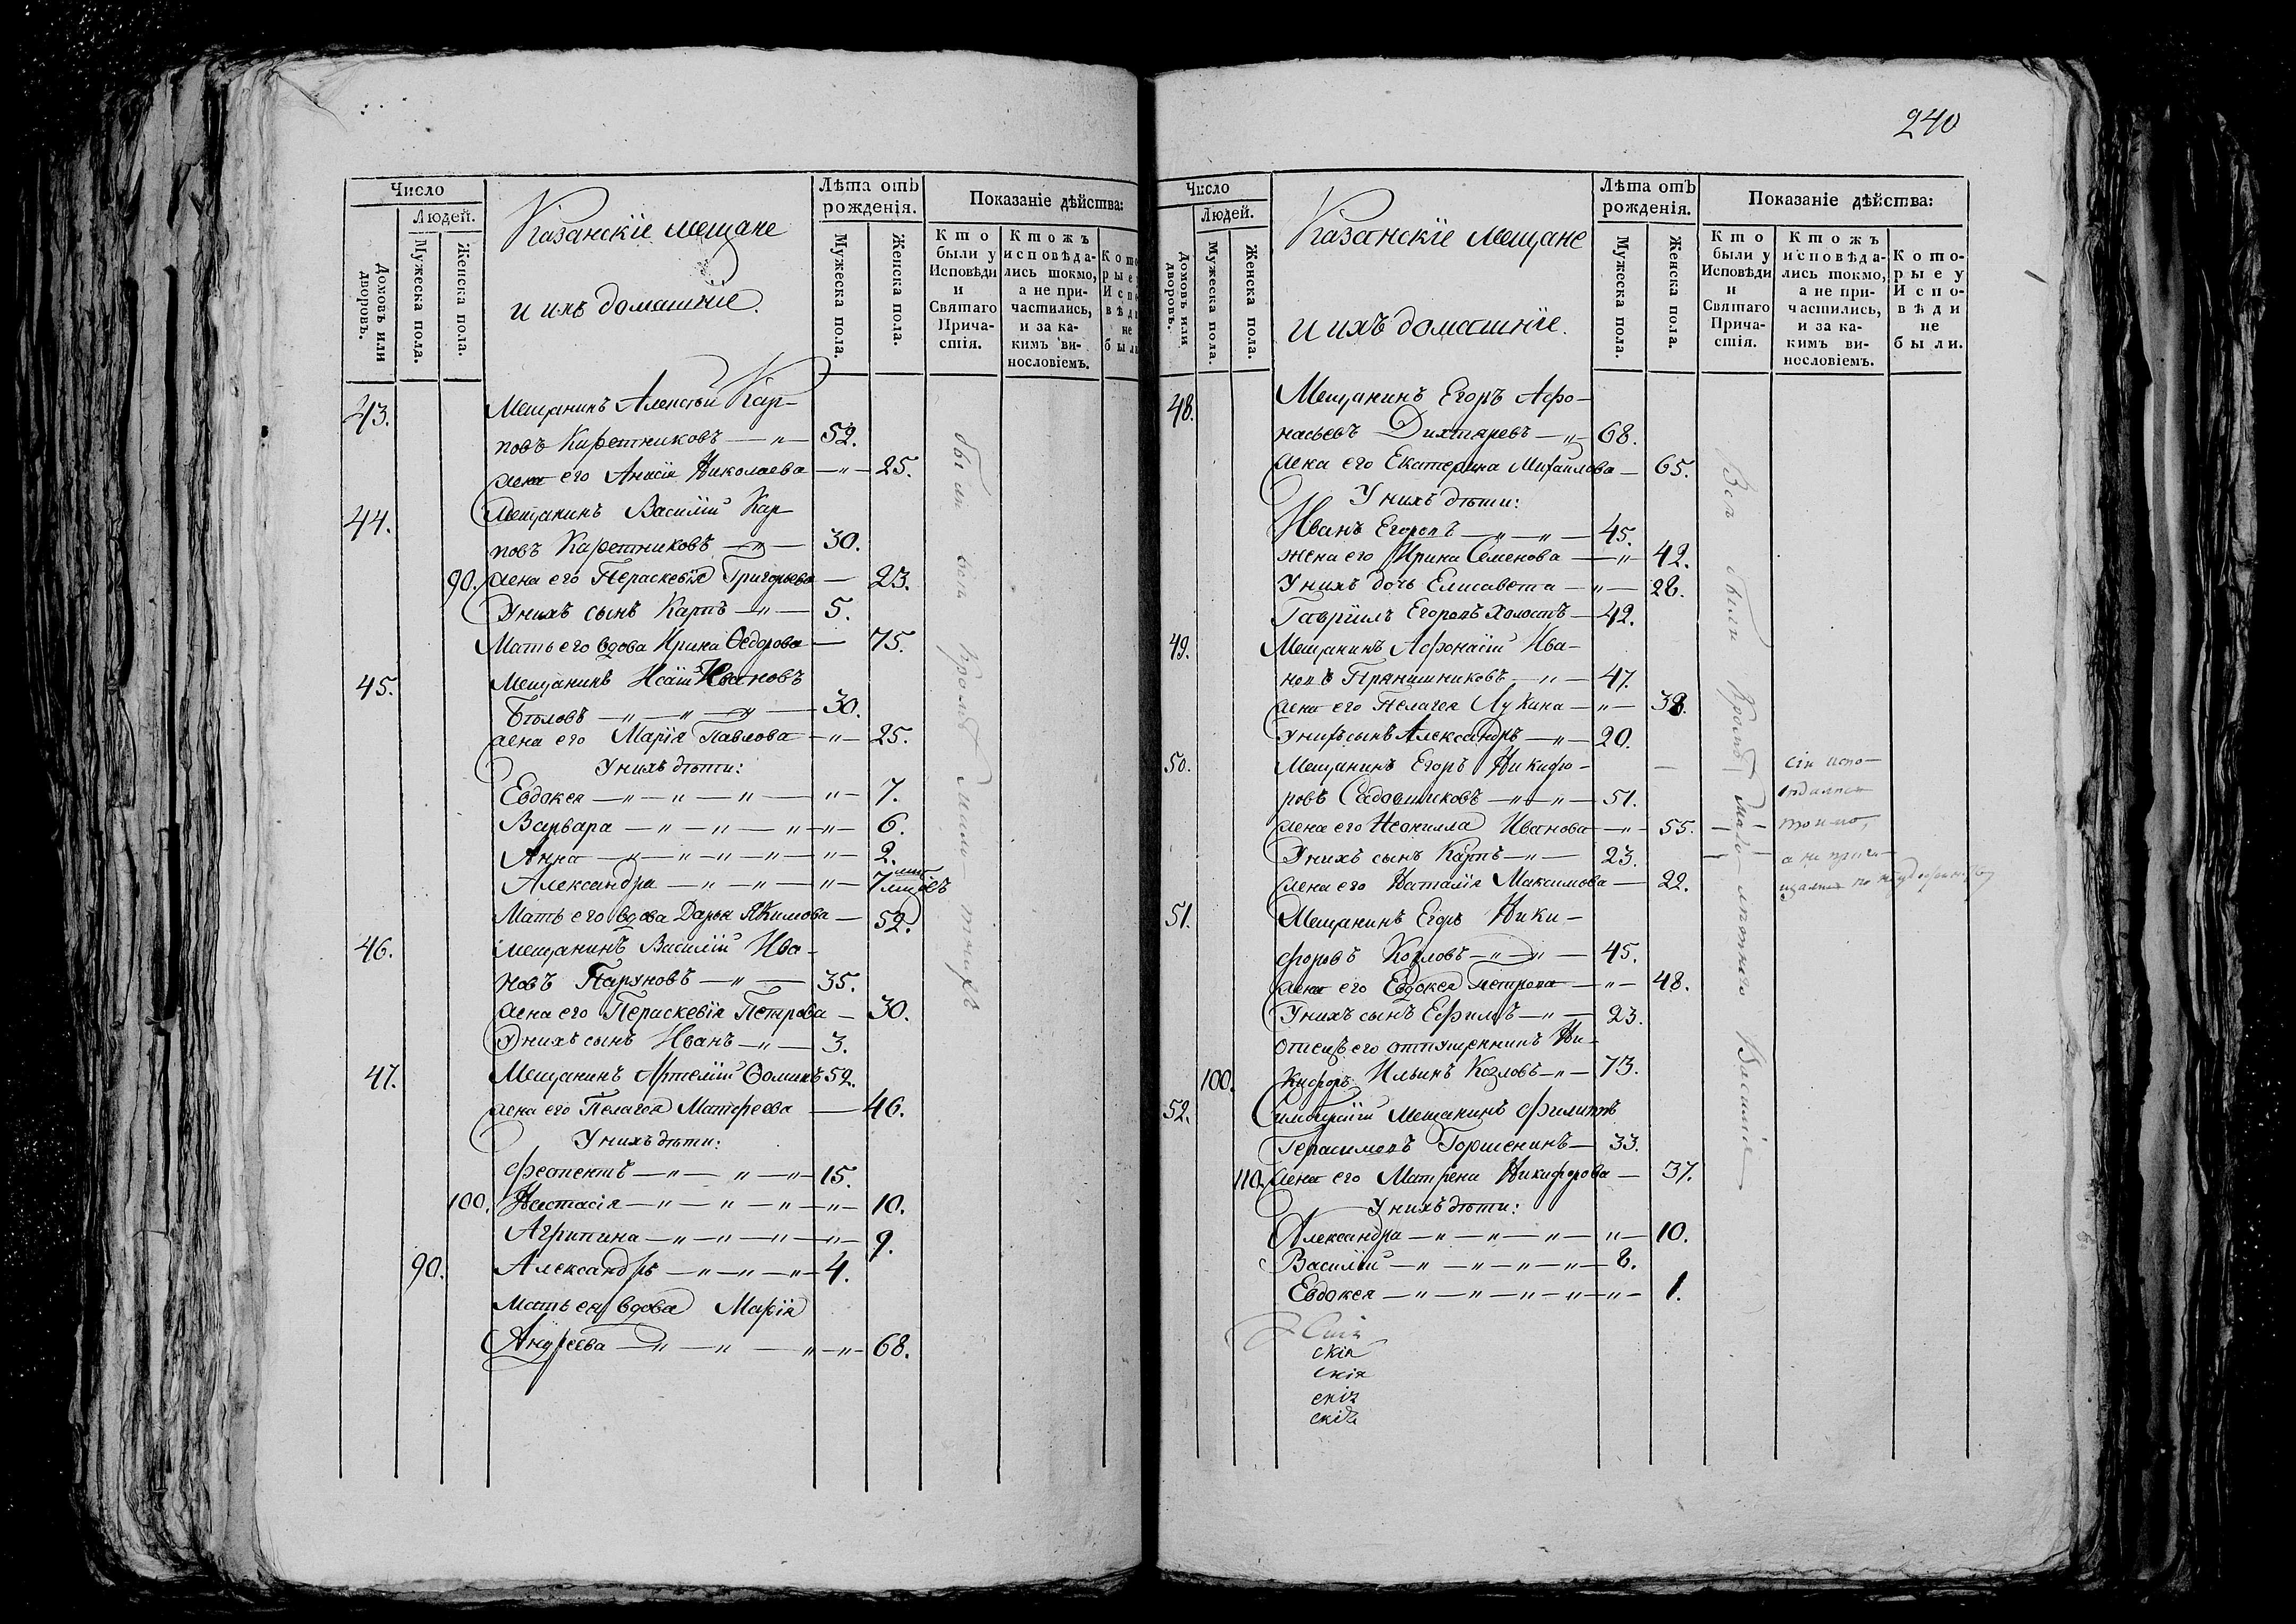 Число
Людей.
Домовъ или дворовъ.
Мужеска пола.
Женска пола.
Казанскіе мещане
и ихъ домашніе.
Лѣта отъ рожденія.
Мужеска пола.
Женска пола.
Показаніе дѣйства:
Кто были у Исповѣди и Святаго Прича-стія.
Ктожъ исповѣда-лись токмо, а не при-частились, и за ка-кимъ ви-нословіемъ.
43. Мещанинъ Алексѣй Кар-
повъ Каретниковъ — „ — 52.
жена его Анисія Николаева — „ — 25.
44. Мещанинъ Василій Кар
повъ Каретниковъ — „ — 30.
90. жена его Пераскевія Григорьева — 23.
У нихъ сынъ Карпъ — „ — 5.
Мать его вдова Ирина Ѳедорова — 75.
45. Мещанинъ Исай Ивановъ
Бѣловъ — „ — „ — „ — 30.
жена его Марія Павлова — „ — 25.
У нихъ дѣти:
Евдокея — „ — „ — „ — „ — 7.
Варвара — „ — „ — „ — „ — 6.
Анна — „ — „ — „ — „ — „ — 2.
Александра — „ — „ — „ — 7
Мать его вдова Дарья Якимова — 52.
46. мещанинъ Василій Ива-
новъ Паруновъ — „ — 35.
жена его Пераскевія Петрова — 30.
У нихъ сынъ Иванъ — „ — 3.
47. Мещанинъ Артемій Ѳоминъ 52.
жена его Пелагея Матфеева — 46.
У нихъ дѣти:
Феопентъ — „ — „ — „ — 15.
100. Настасія — „ — „ — „ — „ — 10.
Агрипина — „ — „ — „ — „ — 9.
90. Александръ — „ — „ — „ — 4.
мать ея вдова Марія
Андреева — „ — „ — „ — „ — 68.
были всѣ кромѣ мало
240
Число
Людей.
Домовъ или дворовъ.
Мужеска пола.
Женска пола.
Казанскіе мещане
и ихъ домашніе.
Лѣта отъ рожденія.
Мужеска пола.
Женска пола.
Показаніе дѣйства:
Кто были у Исповѣди и Святаго Прича-стія.
Ктожъ исповѣда-лись токмо, а не при-частились, и за ка-кимъ ви-нословіемъ.
Кото-рые у Испо-вѣди не были.
48. Мещанинъ Егоръ Афо-
насьевъ Дихтяревъ — „ — 68.
жена его Екатерина Михайлова — 65.
У нихъ дѣти:
Иванъ Егоровъ — „ — „ — 45.
жена его Ирина Семенова — „ — 42.
У нихъ дочь Елисавета — „ — 28.
Гавріилъ Егоровъ холостъ — 42.
49. Мещанинъ Афонасій Ива-
новъ Прянишниковъ — „ — 47.
жена его Пелагея Лукина — „ — 38.
У нихъ сынъ Александръ — „ — 20.
50. Мещанинъ Егоръ Никифо-
ровъ Садовниковъ — „ — „ — 51.
жена его Неонилла Иванова — „ — 55.
У нихъ сынъ Карпъ — „ — 23.
жена его Наталія Максимова — 22.
сіи испо-
вѣдались
токмо,
а не приоб-
щались по
51. Мещанинъ Егоръ Ники-
форовъ Козловъ — „ — „ — 45.
жена его Евдокея Петрова — „ — 48.
У нихъ сынъ Ефимъ — „ — 23.
Отецъ его отпущенникъ Ни-
100. кифоръ Ильинъ Козловъ — „ — 73.
52. Симбирскій Мещанинъ Филиппъ
Герасимовъ Горшенинъ — 33.
110. жена его Матрена Никифорова — 37.
У нихъ дѣти:
Александра — „ — „ — „ — „ — 10.
Василій — „ — „ — „ — „ — 8.
Евдокея — „ — „ — „ — „ — „ — 1.
Всѣ были кромѣ мало лѣтняго Василія
скія
скія
скія
скія